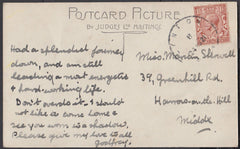 POSTCARD PICTURE
BY JUDGES LTD HASTINGS
Had a splendid journey
down, and am still
leading a most energetic
& hard-working life.
Don't overdo it & should
not like to come home &
see you worn to a shadow,
Please give my love to all
Godfrey.
Miss Marian Showell
39, Greenhill Rd,
Harrow-on-the-Hill
Middx